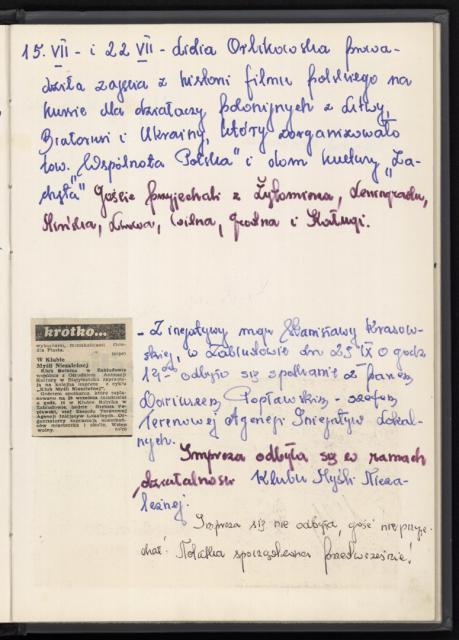 15. VII - i 22 VII - Lidia Orlikowska prowa-
dziła zajęcia z historii filmu polskiego na
kursie dla działaczy Polonijnych z Litwy,
Białorusi i Ukrainy, który zorganizowało
tow. "Wspólnota Polska" i dom kultury "Za-
chęta" Goście przyjechali z Żytomierza, Leningradu,
Mińska, Lwowa, Wilna, Grodna i Kaługi.
krótko...
W Klubie
Myśli Niezależnej
Klub Rolnika w Zabłudowie
wspólnie z Ośrodkiem Animacji
Kultury w Białymstoku zaprasza-
ją na kolejną imprezę z cyklu
„Klub Myśli Niezależnej".
- Z inicjatywy mgr Stanisławy Krasow-
skiej, w Zabłudowie dn 29 IX o godz
17⁰⁰ odbyło się spotkanie z panem
Dariuszem Popławskim - szefem
Terenowej Agencji Inicjatyw Lokal-
nych.
Impreza odbyła się w ramach
działalności Klubu Myśli Nieza-
leżnej.
Impreza się nie odbyła, gość nie przyje-
chał! Notatka sporządzona przedwcześnie!